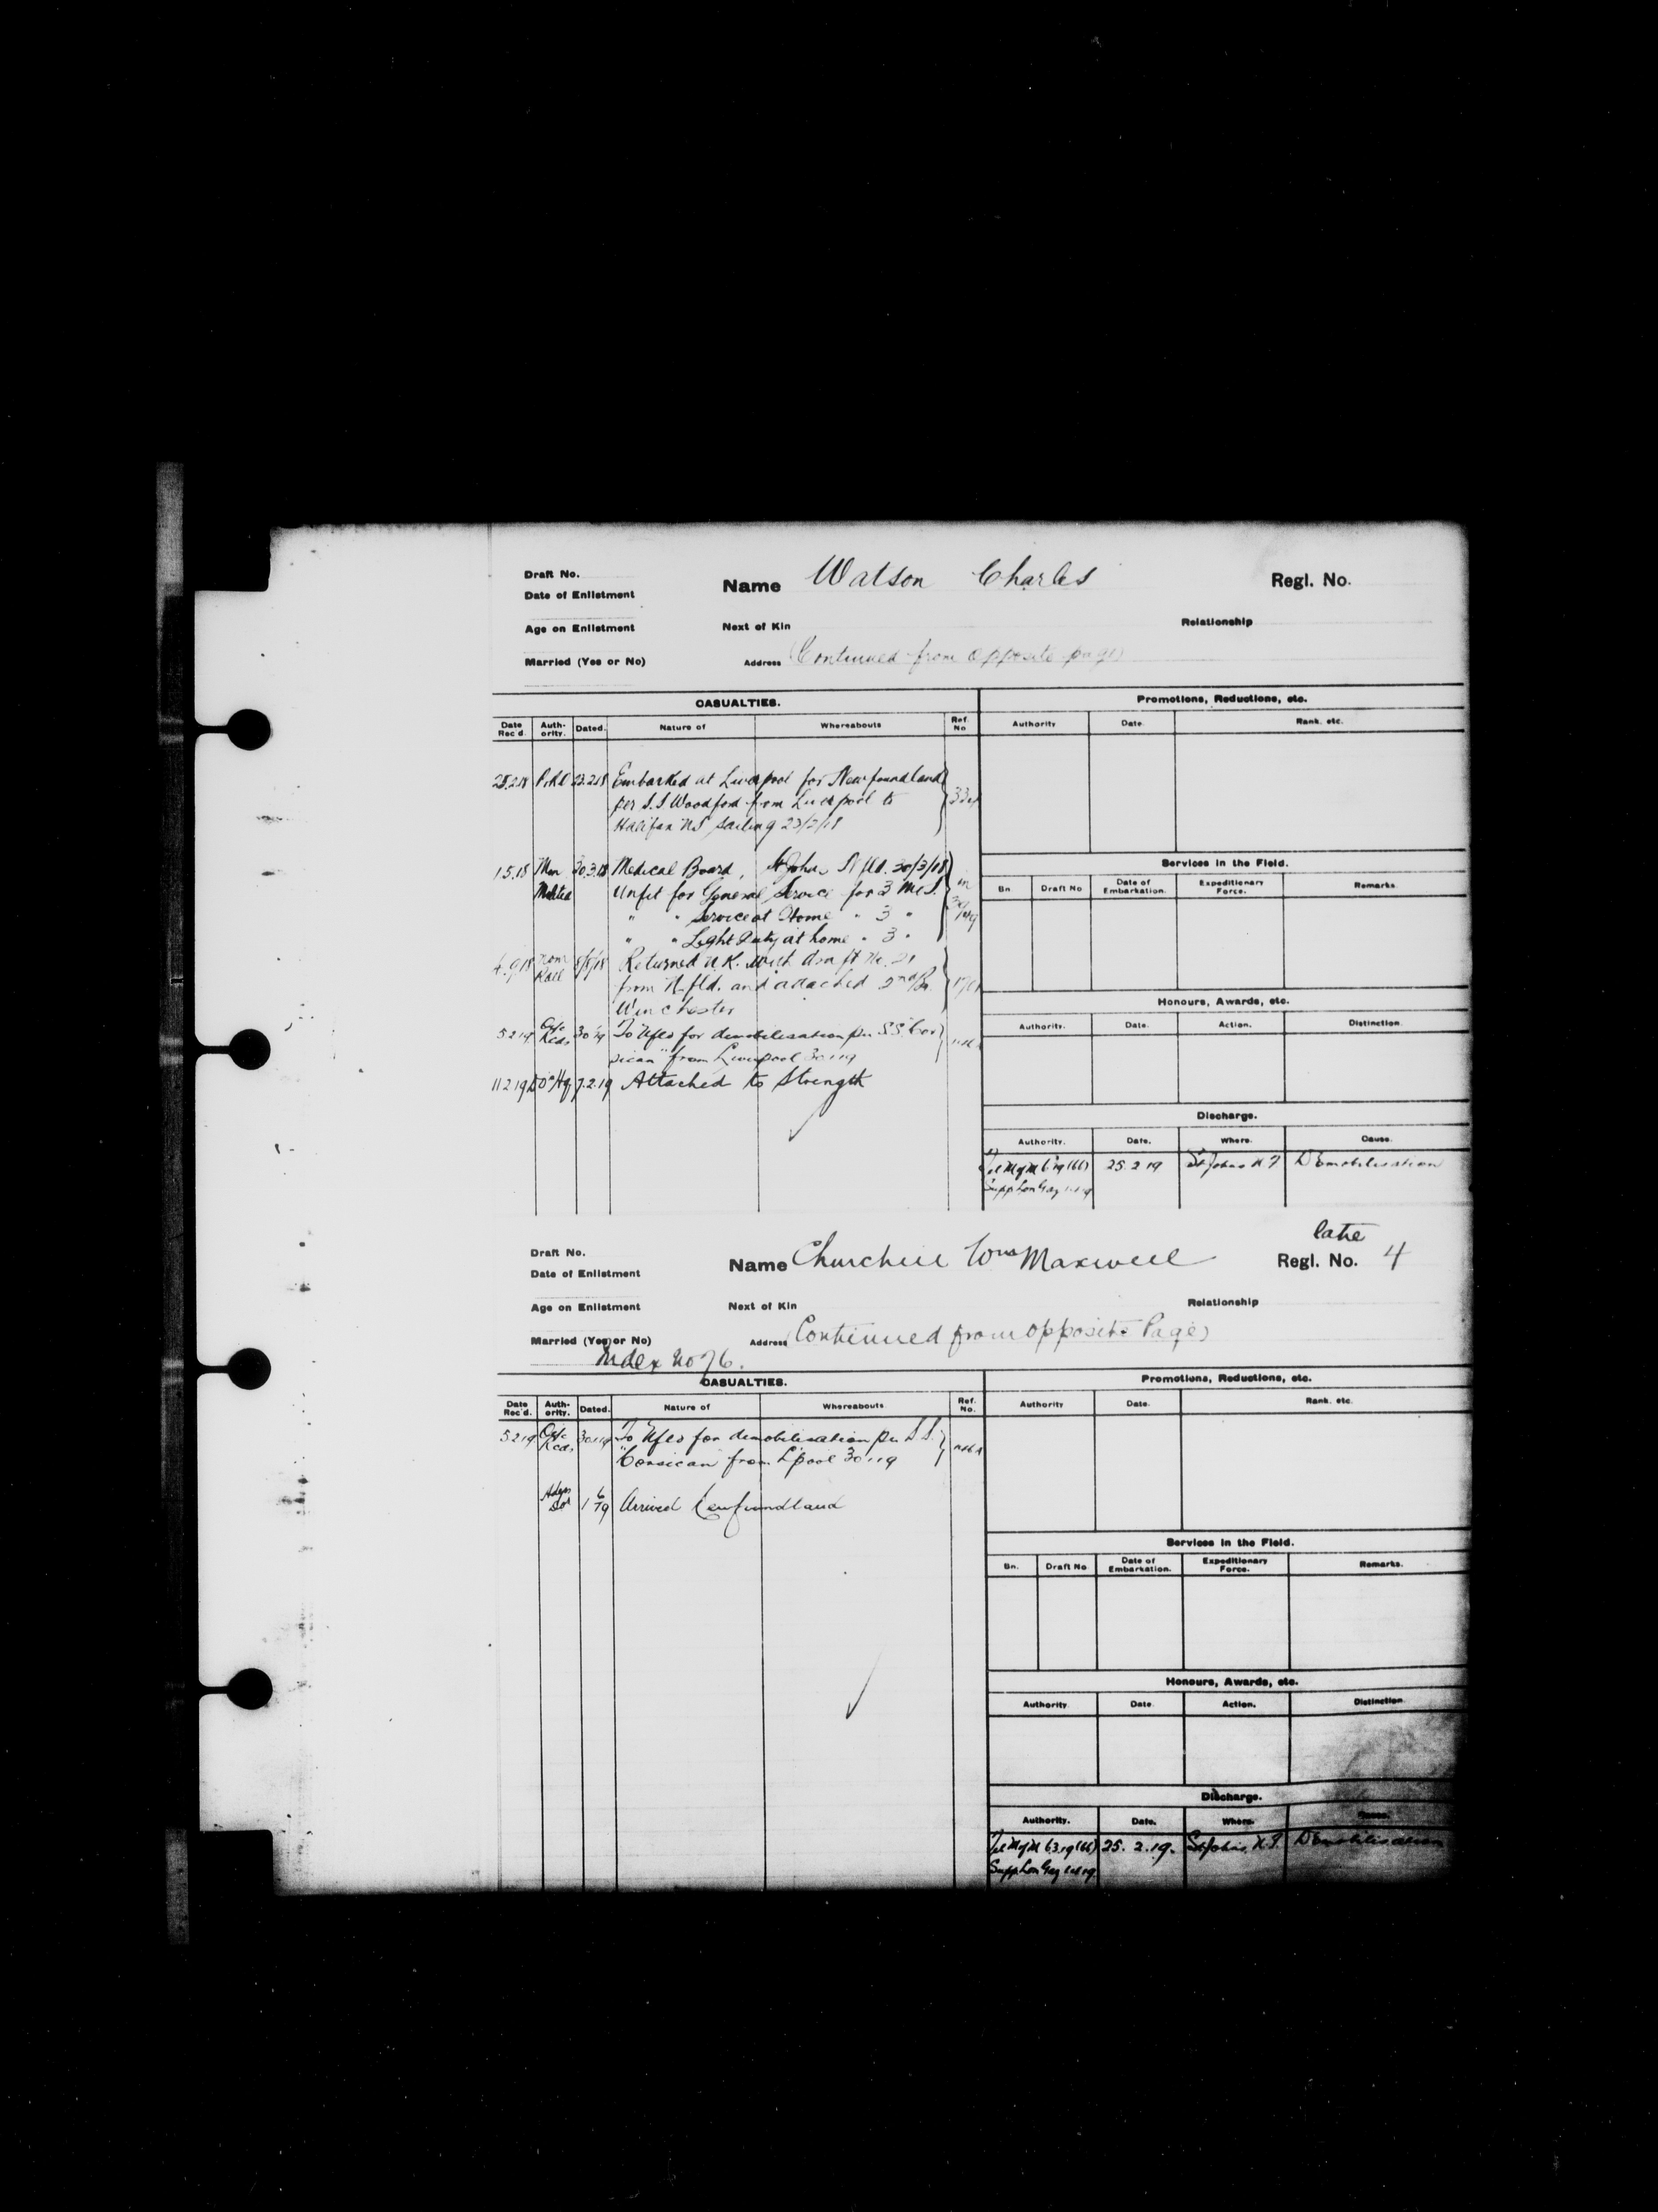 Draft No.
Date of Enlistment
Name Watson Charles
Regl. No.
Age on Enlistment
Next of Kin
Relationship
Married (Yes or No)
Address (Continued from opposite page)
CASUALTIES.
Promotions, Reductions, etc.
Date Rec'd. Auth- ority. Dated. Nature of Whereabouts Ref. No
Authority Date. Rank. etc.
25.2.18 22.2.18 Embarked at Liverpool for Newfoundland
per S.S Woodford from Liverpool to
Halifax NS sailing 23/2/18
1.5.18 Min Militia 30.3.18 Medical Board, St Johns Nfld. 30/3/18
Unfit for General Service for 3 Mos.
" " Service at Home " 3 "
" " Light Duty at home " 3 "
4.9.18 nom Roll Returned U.K. with draft No. 21
from Nfld. and attached 2nd Bn.
Winchester
5.2.19 30.1.19 To Nfld for demobilisation per S.S. "Cor
sican" from Liverpool 30.1.19
11.2.19 7.2.19 Attached to Strength
Services in the Field.
Bn Draft No Date of Embarkation. Expeditionary Force. Remarks.
Honours, Awards, etc.
Authority. Date. Action. Distinction.
Discharge.
Authority. Date. Where. Cause.
25.2.19 St Johns N.F. Demobilisation
Supp Lon Gaz
late
Draft No.
Date of Enlistment
Name Churchill Wm Maxwell
Regl. No. 4
Age on Enlistment
Next of Kin
Relationship
Married (Yes or No)
Address (Continued from opposite Page)
Index No 76.
CASUALTIES.
Promotions, Reductions, etc.
Date Rec'd. Auth- ority. Dated. Nature of Whereabouts Ref. No.
Authority Date. Rank. etc.
5.2.19 30.1.19 To Nfld for demobilisation per S.S.
"Corsican" from L'pool 30.1.19
Arrived Newfoundland
Services in the Field.
Bn. Draft No Date of Embarkation. Expeditionary Force. Remarks.
Honours, Awards, etc.
Authority Date. Action. Distinction.
Discharge.
Authority. Date. Where.
25.2.19. St Johns N.F. Demobilisation
Supp Lon Gaz